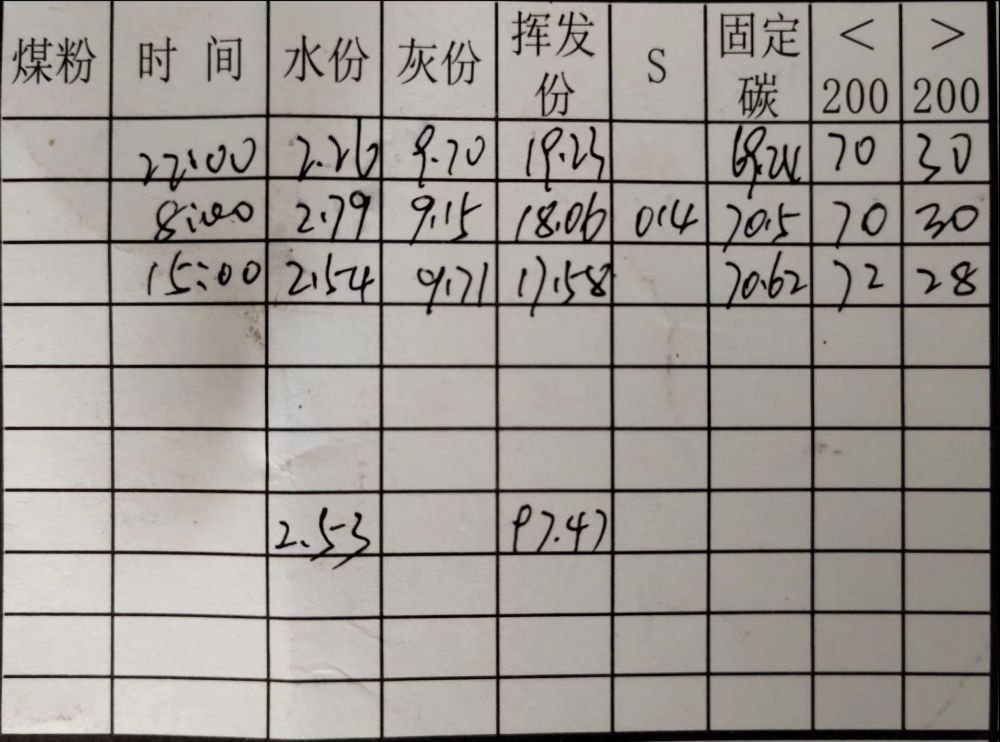 煤粉 时 间 水份 灰份 挥发份 S 固定碳 < 200 > 200
22:00 2.26 9.70 19.23 69.24 70 30
8:00 2.79 9.15 18.06 0.4 70.5 70 30
15:00 2.54 9.71 17.58 70.62 72 28
2.53 97.47